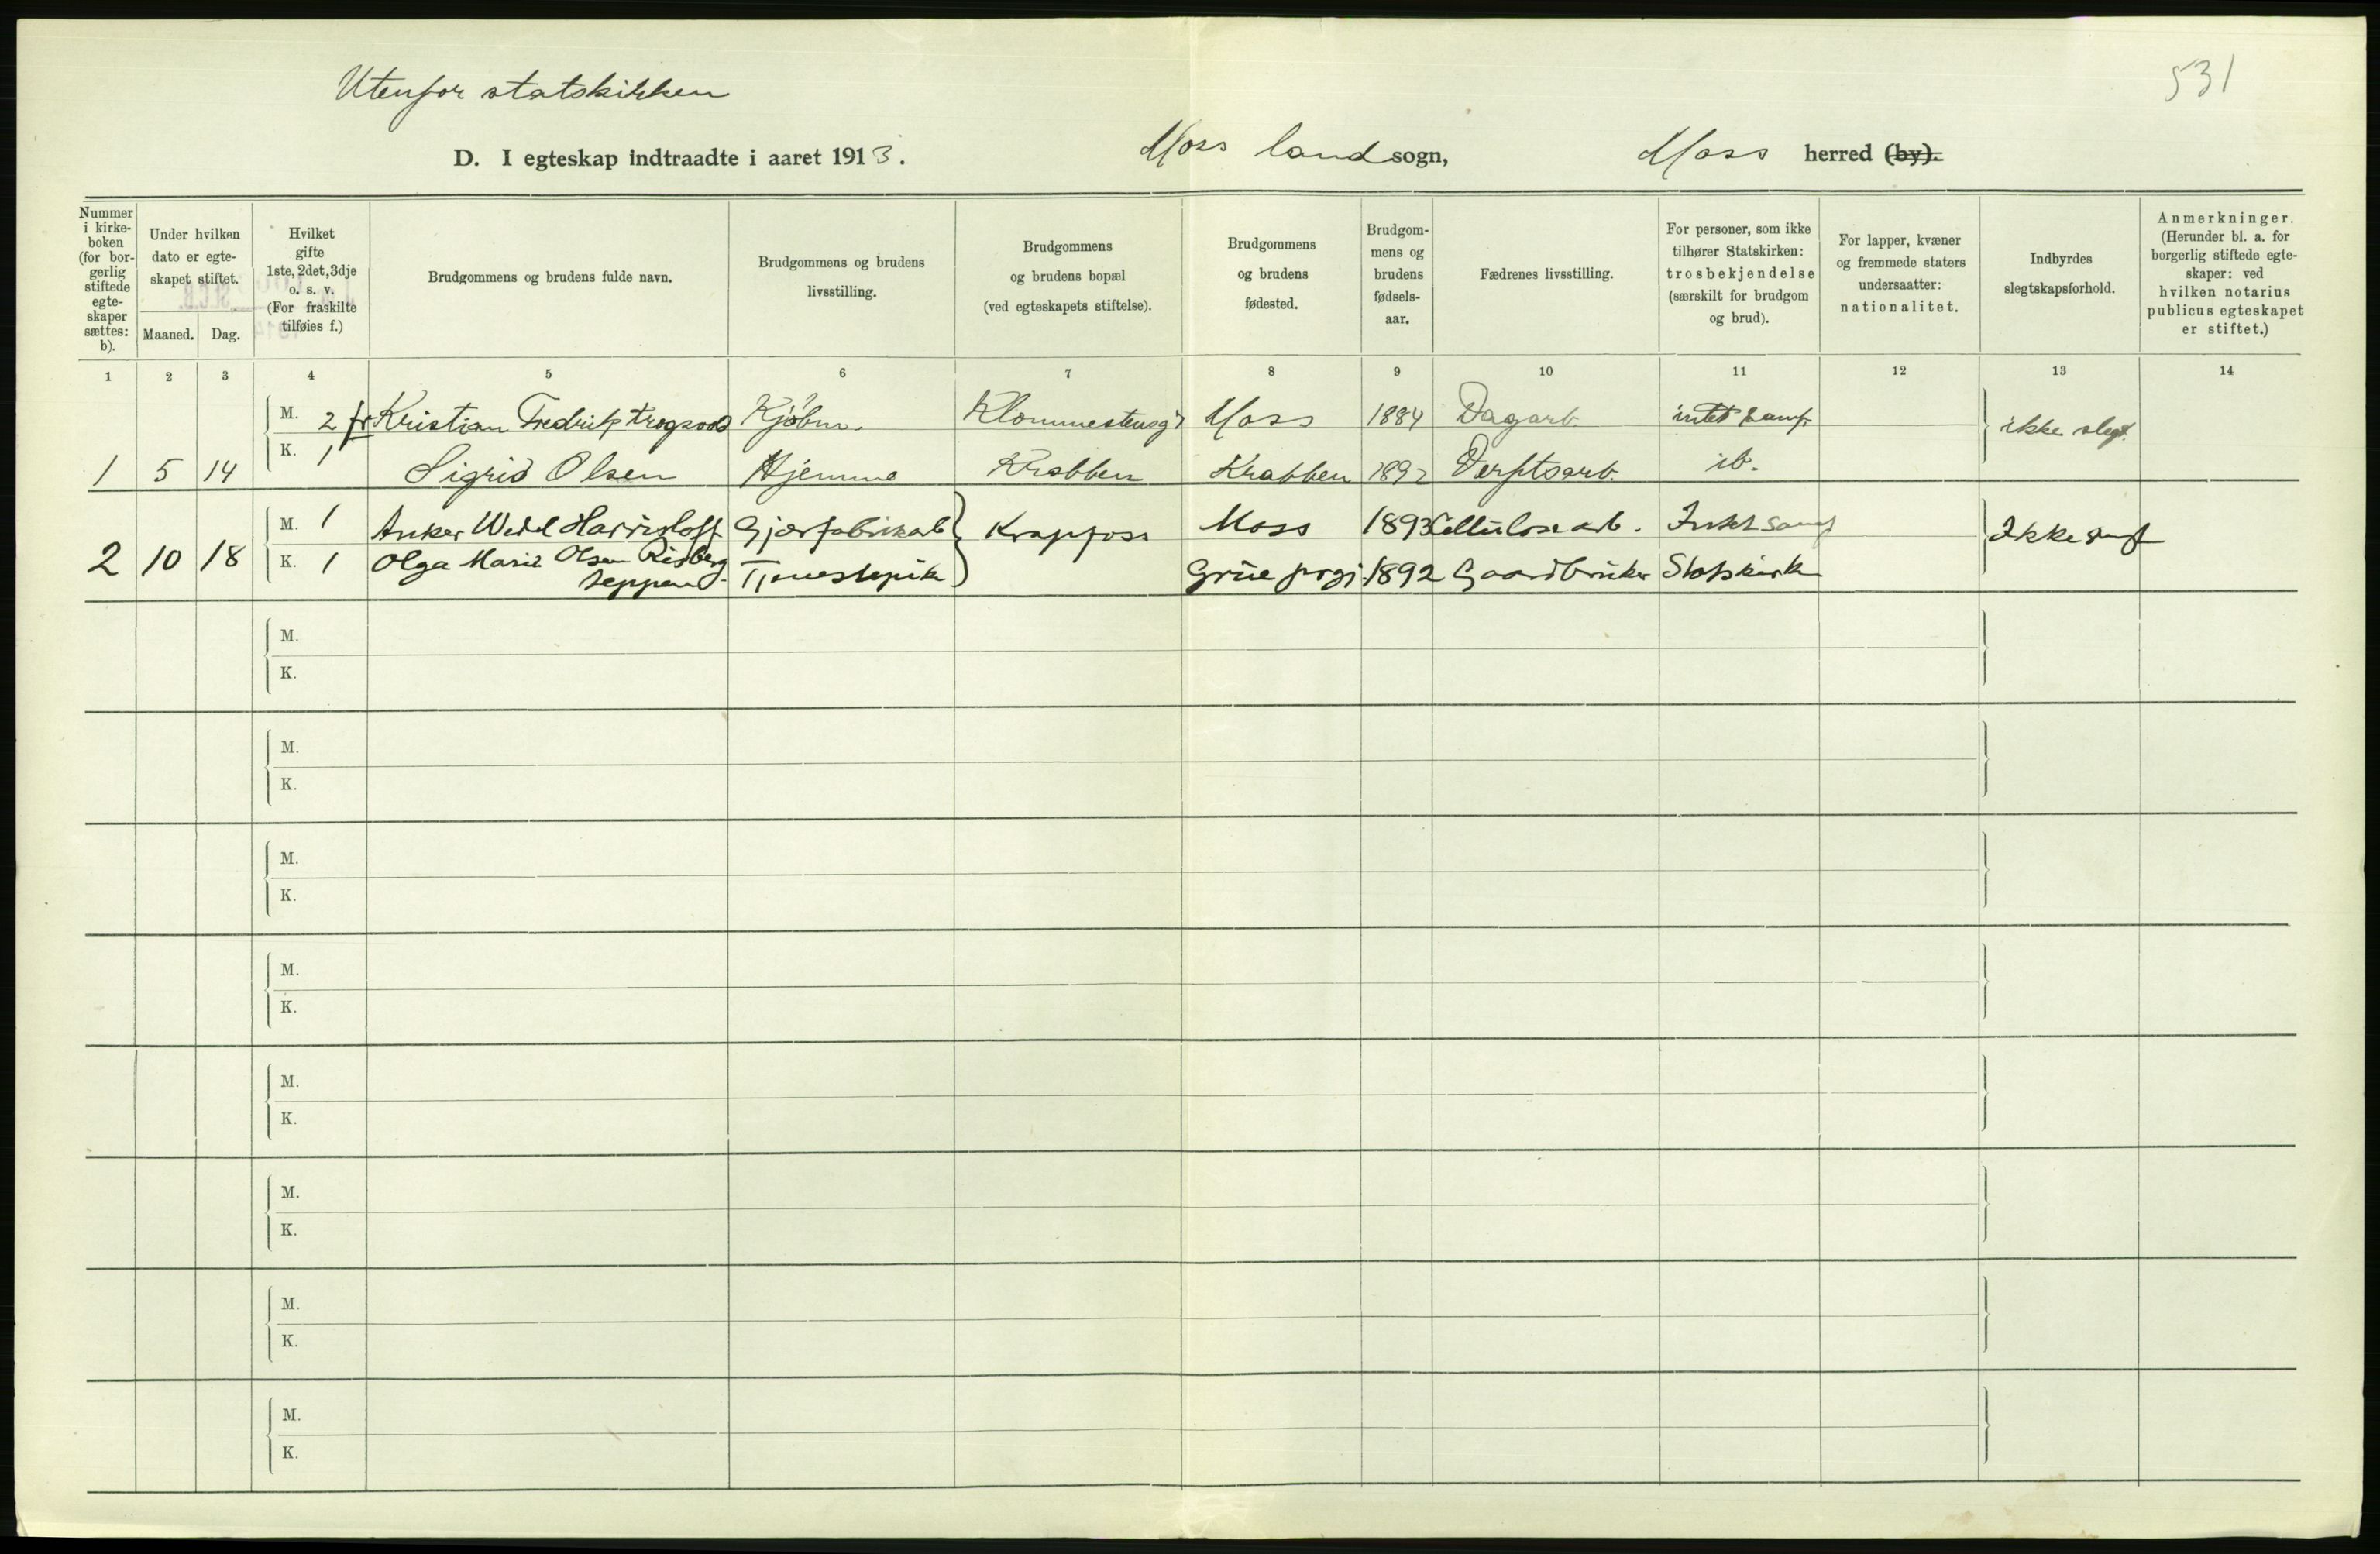 Utenfor statskirken
531
D. I egteskap indtraadte i aaret 1913. Moss landsogn, Moss herred (by).
Nummer i kirkeboken (for borgerlig stiftede egteskaper sættes: b).
Under hvilken dato er egteskapet stiftet.
Maaned. Dag.
Hvilket gifte 1ste, 2det, 3dje o. s. v. (For fraskilte tilføies f.)
Brudgommens og brudens fulde navn.
Brudgommens og brudens livsstilling.
Brudgommens og brudens bopæl (ved egteskapets stiftelse).
Brudgommens og brudens fødested.
Brudgommens og brudens fødselsaar.
Fædrenes livsstilling.
For personer, som ikke tilhører Statskirken: trosbekjendelse (særskilt for brudgom og brud).
For lapper, kvæner og fremmede staters undersaatter: nationalitet.
Indbyrdes slegtskapsforhold.
Anmerkninger. (Herunder bl. a. for borgerlig stiftede egteskaper: ved hvilken notarius publicus egteskapet er stiftet.)
1 2 3 4 5 6 7 8 9 10 11 12 13 14
M. 2 fr Kristian Fredrik Kjøbm. Moss 1884 Dagarb. intet samf. ikke slegt.
1 5 14 K. 1 Sigrid Olsen Hjemme Krabben Krabben 1892 Verftsarb. ib.
M. 1 Anker Wedel Gjærfabrikarb Krapfoss Moss 1893 Cellulosearb. Intet samf Ikke
2 10 18 K. 1 Olga Marie Olsen Risberg Seppen Tjenestepike Grue prgj 1892 Gaardbruker Statskirken
M.
K.
M.
K.
M.
K.
M.
K.
M.
K.
M.
K.
M.
K.
M.
K.